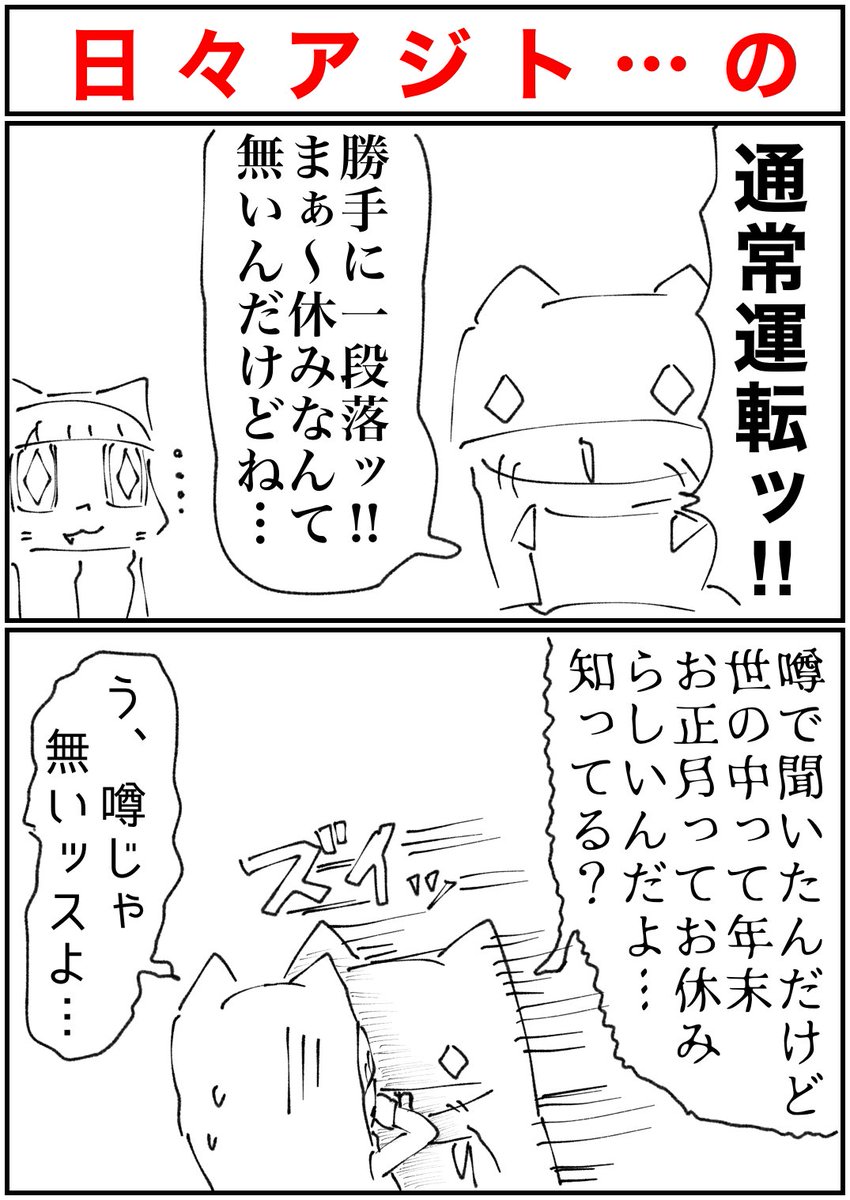 日々アジト…の
通常運転ッ!!
勝手に一段落ッ!!
まぁ～休みなんて
無いんだけどね…
…
噂で聞いたんだけど
世の中って年末
お正月ってお休み
らしいんだよ…
知ってる？
ズイッ
う、噂じゃ
無いッスよ…